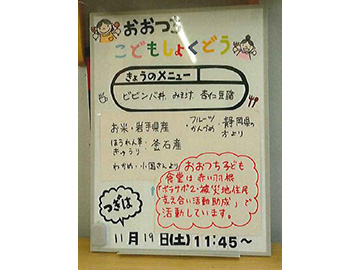 おおつち
こどもしょくどう
きょうのメニュー
ビビンバ丼 みそ汁 杏仁豆腐
お米・岩手県産
ほうれん草・きゅうり 釜石産
わかめ・小国さんより
フルーツかんづめ・静岡県の方より
おおつち子ども
食堂は赤い羽根
「ボラサポ2・被災地住民
支え合い活動助成」で
活動しています。
つぎは
11月19日(土)11:45〜